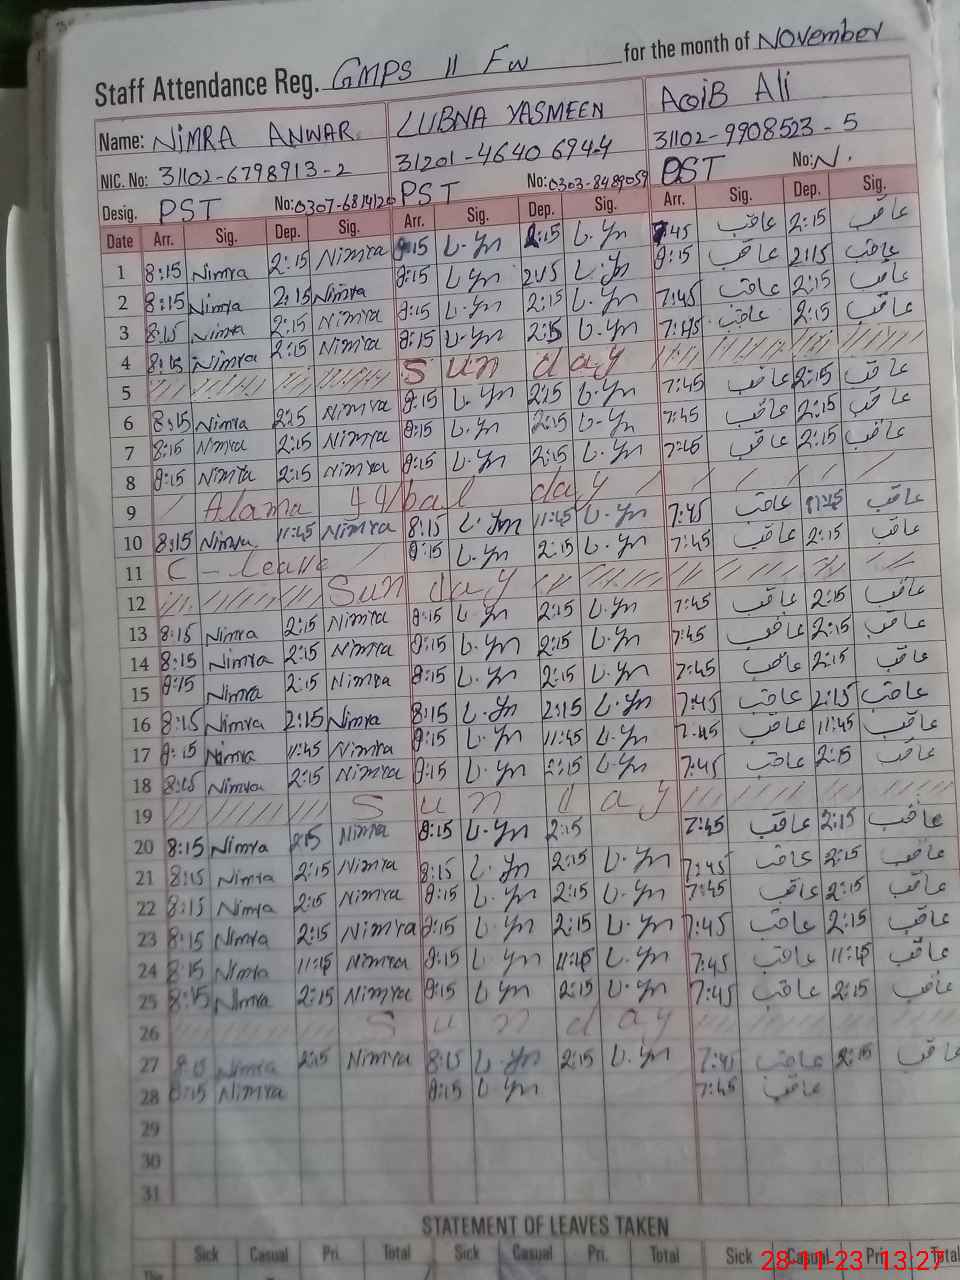 Staff Attendance Reg. GMPS 11 FW for the month of November
Name: NIMRA ANWAR LUBNA YASMEEN AQIB Ali
NIC. No: 31102-6798913-2 31201-4640694-4 31102-9908523-5
Desig. PST No: PST No:0303-8489059 PST No:N.
Date Arr. Sig. Dep. Sig. Arr. Sig. Dep. Sig. Arr. Sig. Dep. Sig.
1 8:15 Nimra 2:15 Nimra 8:15 L.Yn 2:15 L.Yn 7:45 عاقب 2:15 عاقب
2 8:15 Nimra 2:15 Nimra 8:15 L.Yn 2:15 L.Yn 8:15 عاقب 2:15 عاقب
3 8:15 Nimra 2:15 Nimra 8:15 L.Yn 2:15 L.Yn 7:45 عاقب 2:15 عاقب
4 8:15 Nimra 2:15 Nimra 8:15 L.Yn 2:15 L.Yn 7:45 عاقب 2:15 عاقب
5 Sunday
6 8:15 Nimra 2:15 Nimra 8:15 L.Yn 2:15 L.Yn 7:45 عاقب 2:15 عاقب
7 8:15 Nimra 2:15 Nimra 8:15 L.Yn 2:15 L.Yn 7:45 عاقب 2:15 عاقب
8 8:15 Nimra 2:15 Nimra 8:15 L.Yn 2:15 L.Yn 7:45 عاقب 2:15 عاقب
9 Alama day
10 8:15 Nimra 11:45 Nimra 8:15 L.Yn 11:45 L.Yn 7:45 عاقب 11:45 عاقب
11 C-Leave 8:15 L.Yn 2:15 L.Yn 7:45 عاقب 2:15 عاقب
12 Sunday
13 8:15 Nimra 2:15 Nimra 8:15 L.Yn 2:15 L.Yn 7:45 عاقب 2:15 عاقب
14 8:15 Nimra 2:15 Nimra 8:15 L.Yn 2:15 L.Yn 7:45 عاقب 2:15 عاقب
15 8:15 Nimra 2:15 Nimra 8:15 L.Yn 2:15 L.Yn 7:45 عاقب 2:15 عاقب
16 8:15 Nimra 2:15 Nimra 8:15 L.Yn 2:15 L.Yn 7:45 عاقب 2:15 عاقب
17 8:15 Nimra 11:45 Nimra 8:15 L.Yn 11:45 L.Yn 7:45 عاقب 11:45 عاقب
18 8:15 Nimra 2:15 Nimra 8:15 L.Yn 2:15 L.Yn 7:45 عاقب 2:15 عاقب
19 Sunday
20 8:15 Nimra 2:15 Nimra 8:15 L.Yn 2:15 7:45 عاقب 2:15 عاقب
21 8:15 Nimra 2:15 Nimra 8:15 L.Yn 2:15 L.Yn 7:45 عاقب 2:15 عاقب
22 8:15 Nimra 2:15 Nimra 8:15 L.Yn 2:15 L.Yn 7:45 عاقب 2:15 عاقب
23 8:15 Nimra 2:15 Nimra 8:15 L.Yn 2:15 L.Yn 7:45 عاقب 2:15 عاقب
24 8:15 Nimra 11:45 Nimra 8:15 L.Yn 11:45 L.Yn 7:45 عاقب 11:45 عاقب
25 8:15 Nimra 2:15 Nimra 8:15 L.Yn 2:15 L.Yn 7:45 عاقب 2:15 عاقب
26 Sunday
27 8:15 Nimra 2:15 Nimra 8:15 L.Yn 2:15 L.Yn 7:45 عاقب 2:15 عاقب
28 8:15 Nimra 8:15 L.Yn 7:45 عاقب
29
30
31
STATEMENT OF LEAVES TAKEN
Sick Casual Pri. Total Sick Casual Pri. Total Sick Casual Pri. Total
28-11-23 13:27